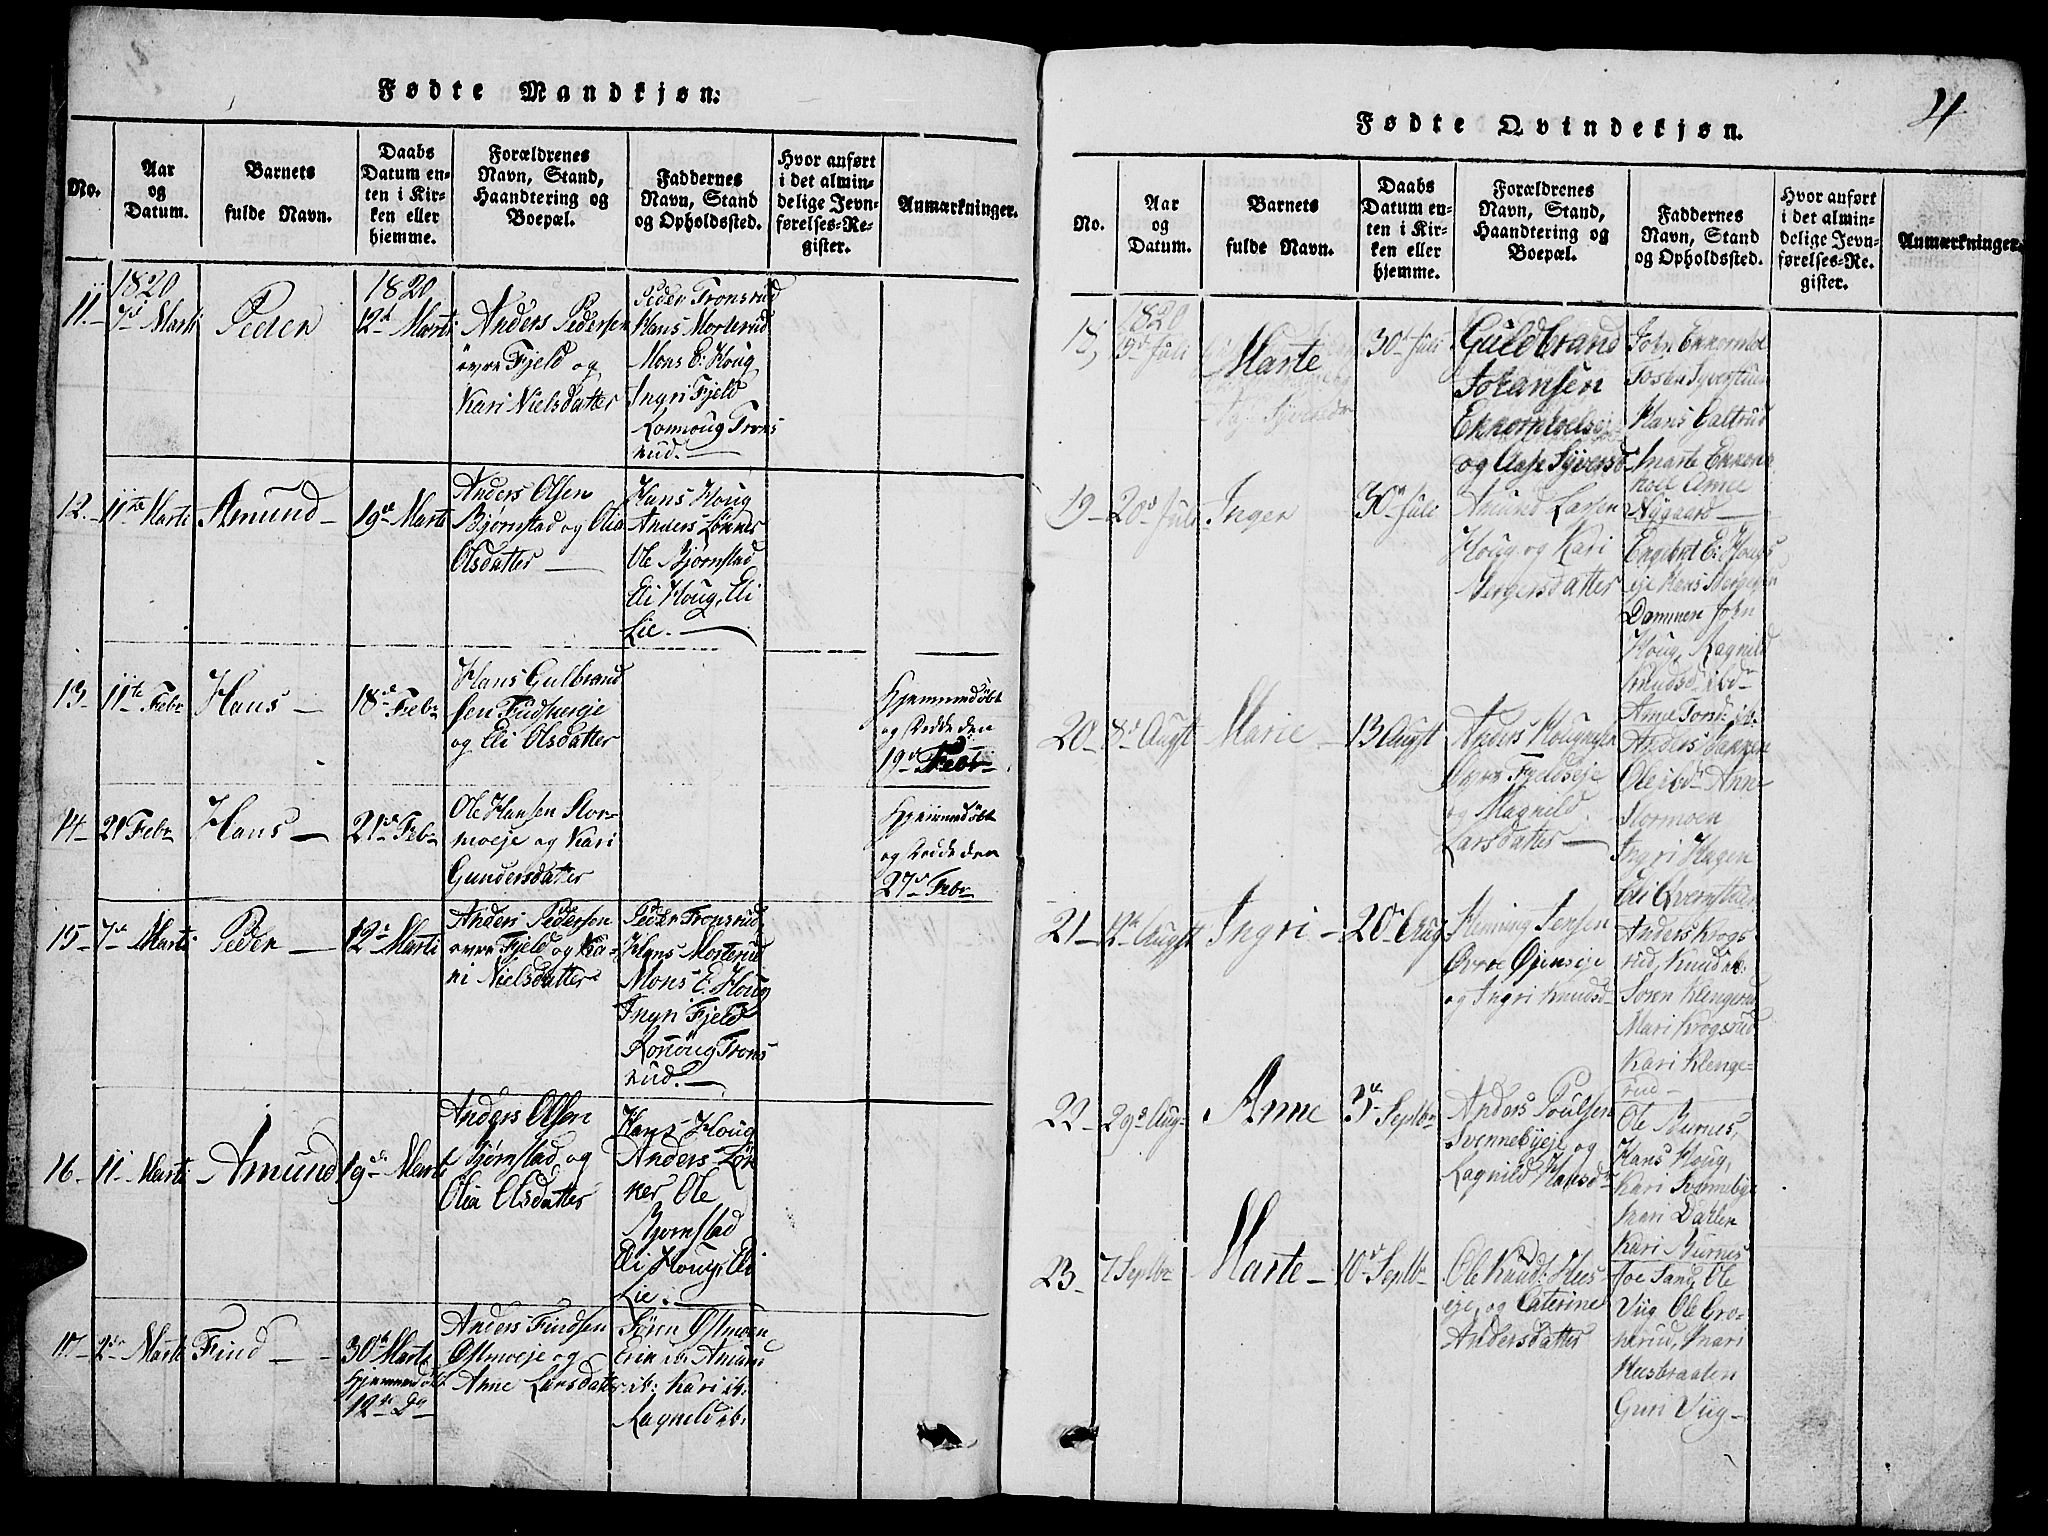 Fødte Mandkjøn:
No.
Aar
og
Datum.
Barnets
fulde Navn.
Daabs
Datum en-
ten i Kir-
ken eller
hiemme.
Forældrenes
Navn, Stand,
Haandtering og
Boepæl.
Faddernes
Navn, Stand
og Opholdssted.
Hvor anført
i det almin-
delige Jevn-
førelses-Re-
gister.
Anmærkninger.
11.
1820
7d Marti
Peder
1820
12d Marti
Anders Pedersen
övre Fjeld og
Kari Nielsdatter
Peder Tronsrud
Hans Morterud
Mons E: Houg
Ingri Fjeld
Trons
rud.
12.
11te Marti
Amund
19de Marti
Anders Olsen
Bjørnstad og Olia
Olsdatter
Hans Houg
Anders Lökker
Ole Bjørnstad
Eli Houg, Eli
Lie.
13
11te Febr
Hans
18de Febr
Hans Gulbrand
sen
og Eli Olsdatter
Hjemmedøbt
og døde den
19d Febr
14
21 Febr
Hans
21de Febr
Ole Hansen Stor-
moeje og Kari
Gundersdatter
Hjemmedøbt
og døde den
27d Febr
15
7de Marti
Peder
12d Marti
Anders Pedersen
øvre Fjeld og Ka-
ri Nielsdatter
Peder Tronsrud,
Hans Morterud
Mons E. Houg
Ingri Fjeld
Trons
rud.
16
11 Marti
Amund
19de Marti
Anders Olsen
Bjørnstad og
Olia Olsdatter
Hans Houg
Anders Løk
ker Ole
Bjørnstad
Eli Houg, Eli
Lie.
17
2de Marti
Find
30th Marti
Hjemmedøbt
12te Do
Anders Findsen
Østmoeje og
Anne Larsdatter
Sören Østmoen
Erik ib: Amund
ib: Kari ib:
Ragnild ib:
4
Fødte Qvindekjøn.
No.
Aar
og
Datum.
Barnets
fulde Navn.
Daabs
Datum en-
ten i Kir-
ken eller
hjemme.
Forældrenes
Navn, Stand,
Haandtering og
Boepæl.
Faddernes
Navn, Stand
og Opholdssted.
Hvor anført
i det almin-
delige Jevn-
førelses-Re-
gister.
Anmærkninger.
18,
1820
9d Juli
Marte
30d Juli
Guldbrand
Johansen
og Aase Syversd
John
Hans
Marte
Anne
Nygaard
19
20d Juli
Inger
30te Juli
Amund Larsen
Houg og Kari
Bergersdatter
Engebret E: Hougs
eje Hans Bergersen
Dammen John
Houg, Ragnild
Knudsd ibdm
20
8d Augst
Marie
13 Augst
Anders Hougensen
Øvre Fjeldseje
og Magnild
Larsdatter
Anne Torsd: ib:
Anders Bakken
Ole ibdm Anne
Stormoen
Ingri Hagen
Eli
21
12te Augst
Ingri
20de Aug
Henning Jensen
Øvre Øjenseje
og Ingri Knudsd
Anders Krogs
rud, Knud ib:
Søren Klengerud
Mari Krogsrud
Kari Klenge-
rud
22
29d Aug
Anne
3de Septbr
Anders Poulsen
Svennebyeje og
Ragnild Hansd
Ole Burnes,
Hans Houg,
Kari Svennebye
Mari Dahlen
Kari Burnes
23
7 Septbr
Marte
10d Septbr
Ole Knuds: Hus
eje, og Caterine
Andersdatter
Joe Sand, Ole
Viig Ole Gro-
terud, Mari
Husbraaten
Guri Viig